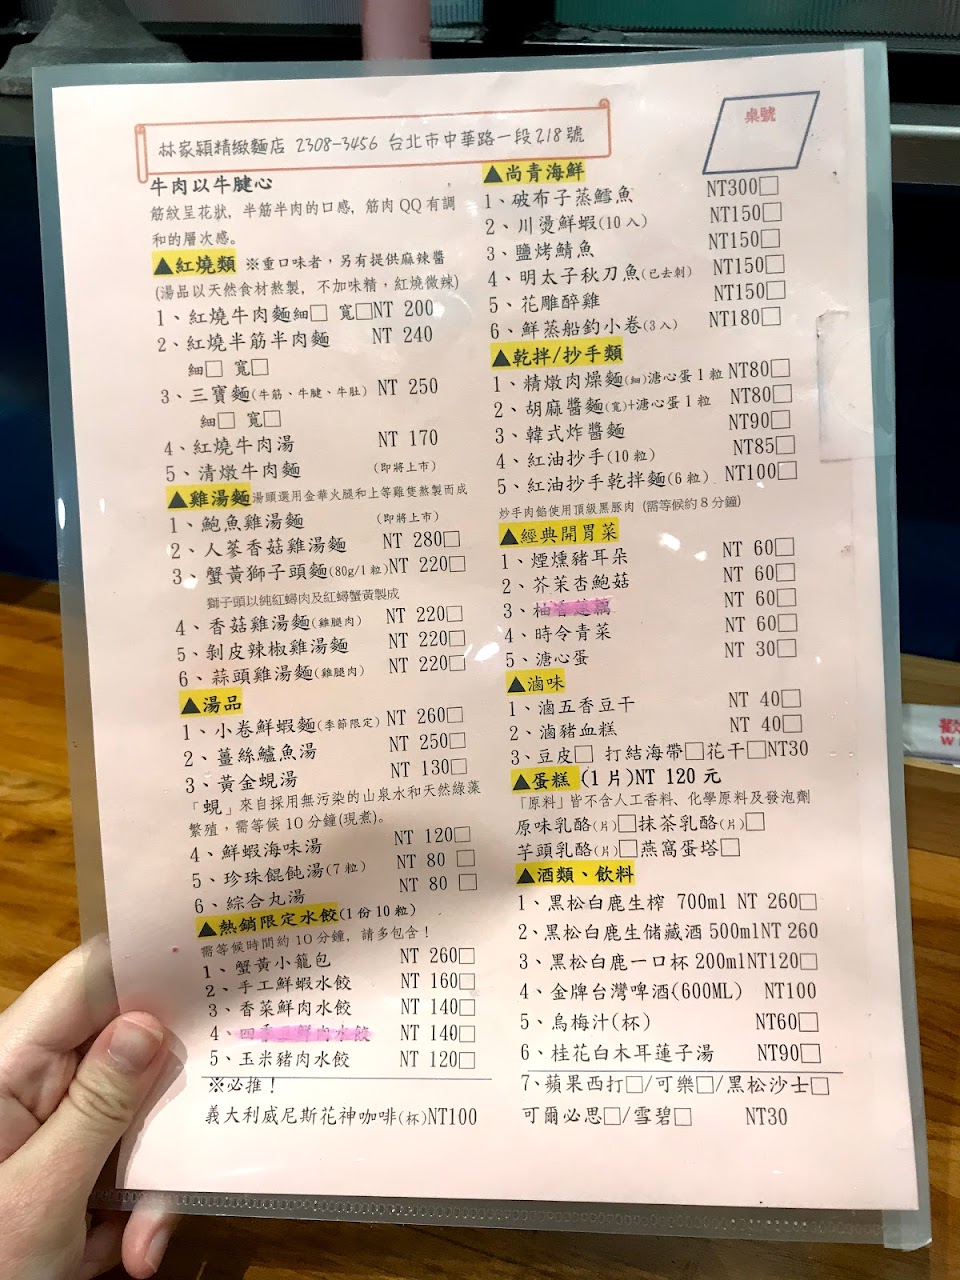 林家潁精緻麵店 2308-3456 台北市中華路一段218號
桌號
牛肉以牛腱心
筋紋呈花狀, 半筋半肉的口感, 筋肉QQ有調
和的層次感。
▲紅燒類 ※重口味者,另有提供麻辣醬
(湯品以天然食材熬製, 不加味精, 紅燒微辣)
1、紅燒牛肉麵細□ 寬□NT 200
2、紅燒半筋半肉麵 NT 240
細□ 寬□
3、三寶麵(牛筋、牛腱、牛肚) NT 250
細□ 寬□
4、紅燒牛肉湯 NT 170
5、清燉牛肉麵 (即將上市)
▲雞湯麵湯頭選用金華火腿和上等雞隻熬製而成
1、鮑魚雞湯麵 (即將上市)
2、人蔘香菇雞湯麵 NT 280□
3、蟹黃獅子頭麵(80g/1粒)NT 220□
獅子頭以純紅蟳肉及紅蟳蟹黃製成
4、香菇雞湯麵(雞腿肉) NT 220□
5、剝皮辣椒雞湯麵 NT 220□
6、蒜頭雞湯麵(雞腿肉) NT 220□
▲湯品
1、小卷鮮蝦麵(季節限定) NT 260□
2、薑絲鱸魚湯 NT 250□
3、黃金蜆湯 NT 130□
「蜆」來自採用無污染的山泉水和天然綠藻
繁殖,需等候10分鐘(現煮)。
4、鮮蝦海味湯 NT 120□
5、珍珠餛飩湯(7粒) NT 80 □
6、綜合丸湯 NT 80 □
▲熱銷限定水餃(1份10粒)
需等候時間約10分鐘, 請多包含!
1、蟹黃小籠包 NT 260□
2、手工鮮蝦水餃 NT 160□
3、香菜鮮肉水餃 NT 140□
4、四季豆鮮肉水餃 NT 140□
5、玉米豬肉水餃 NT 120□
※必推!
義大利威尼斯花神咖啡(杯)NT100
▲尚青海鮮
1、破布子蒸鱈魚 NT300□
2、川燙鮮蝦(10入) NT150□
3、鹽烤鯖魚 NT150□
4、明太子秋刀魚(已去刺) NT150□
5、花雕醉雞 NT150□
6、鮮蒸船釣小卷(3入) NT180□
▲乾拌/抄手類
1、精燉肉燥麵(細)溏心蛋1粒NT80□
2、胡麻醬麵(寬)+溏心蛋1粒 NT80□
3、韓式炸醬麵 NT90□
4、紅油抄手(10粒) NT85□
5、紅油抄手乾拌麵(6粒) NT100□
抄手肉餡使用頂級黑豚肉 (需等候約8分鐘)
▲經典開胃菜
1、煙燻豬耳朵 NT 60□
2、芥茉杏鮑菇 NT 60□
3、柚香蓮藕 NT 60□
4、時令青菜 NT 60□
5、溏心蛋 NT 30□
▲滷味
1、滷五香豆干 NT 40□
2、滷豬血糕 NT 40□
3、豆皮□ 打結海帶□花干□NT30
▲蛋糕 (1片)NT 120元
「原料」皆不含人工香料、化學原料及發泡劑
原味乳酪(片)□抹茶乳酪(片)□
芋頭乳酪(片)□燕窩蛋塔□
▲酒類、飲料
1、黑松白鹿生榨 700ml NT 260□
2、黑松白鹿生储藏酒 500mlNT 260
3、黑松白鹿一口杯 200mlNT120□
4、金牌台灣啤酒(600ML) NT100
5、烏梅汁(杯) NT60□
6、桂花白木耳蓮子湯 NT90□
7、蘋果西打□/可樂□/黑松沙士□
可爾必思□/雪碧□ NT30